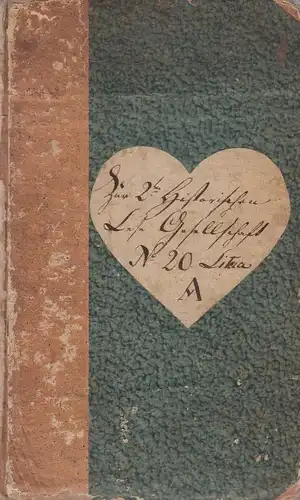 Zur 2t. Historischen
Lese Gesellschaft
No 20 Littra
A